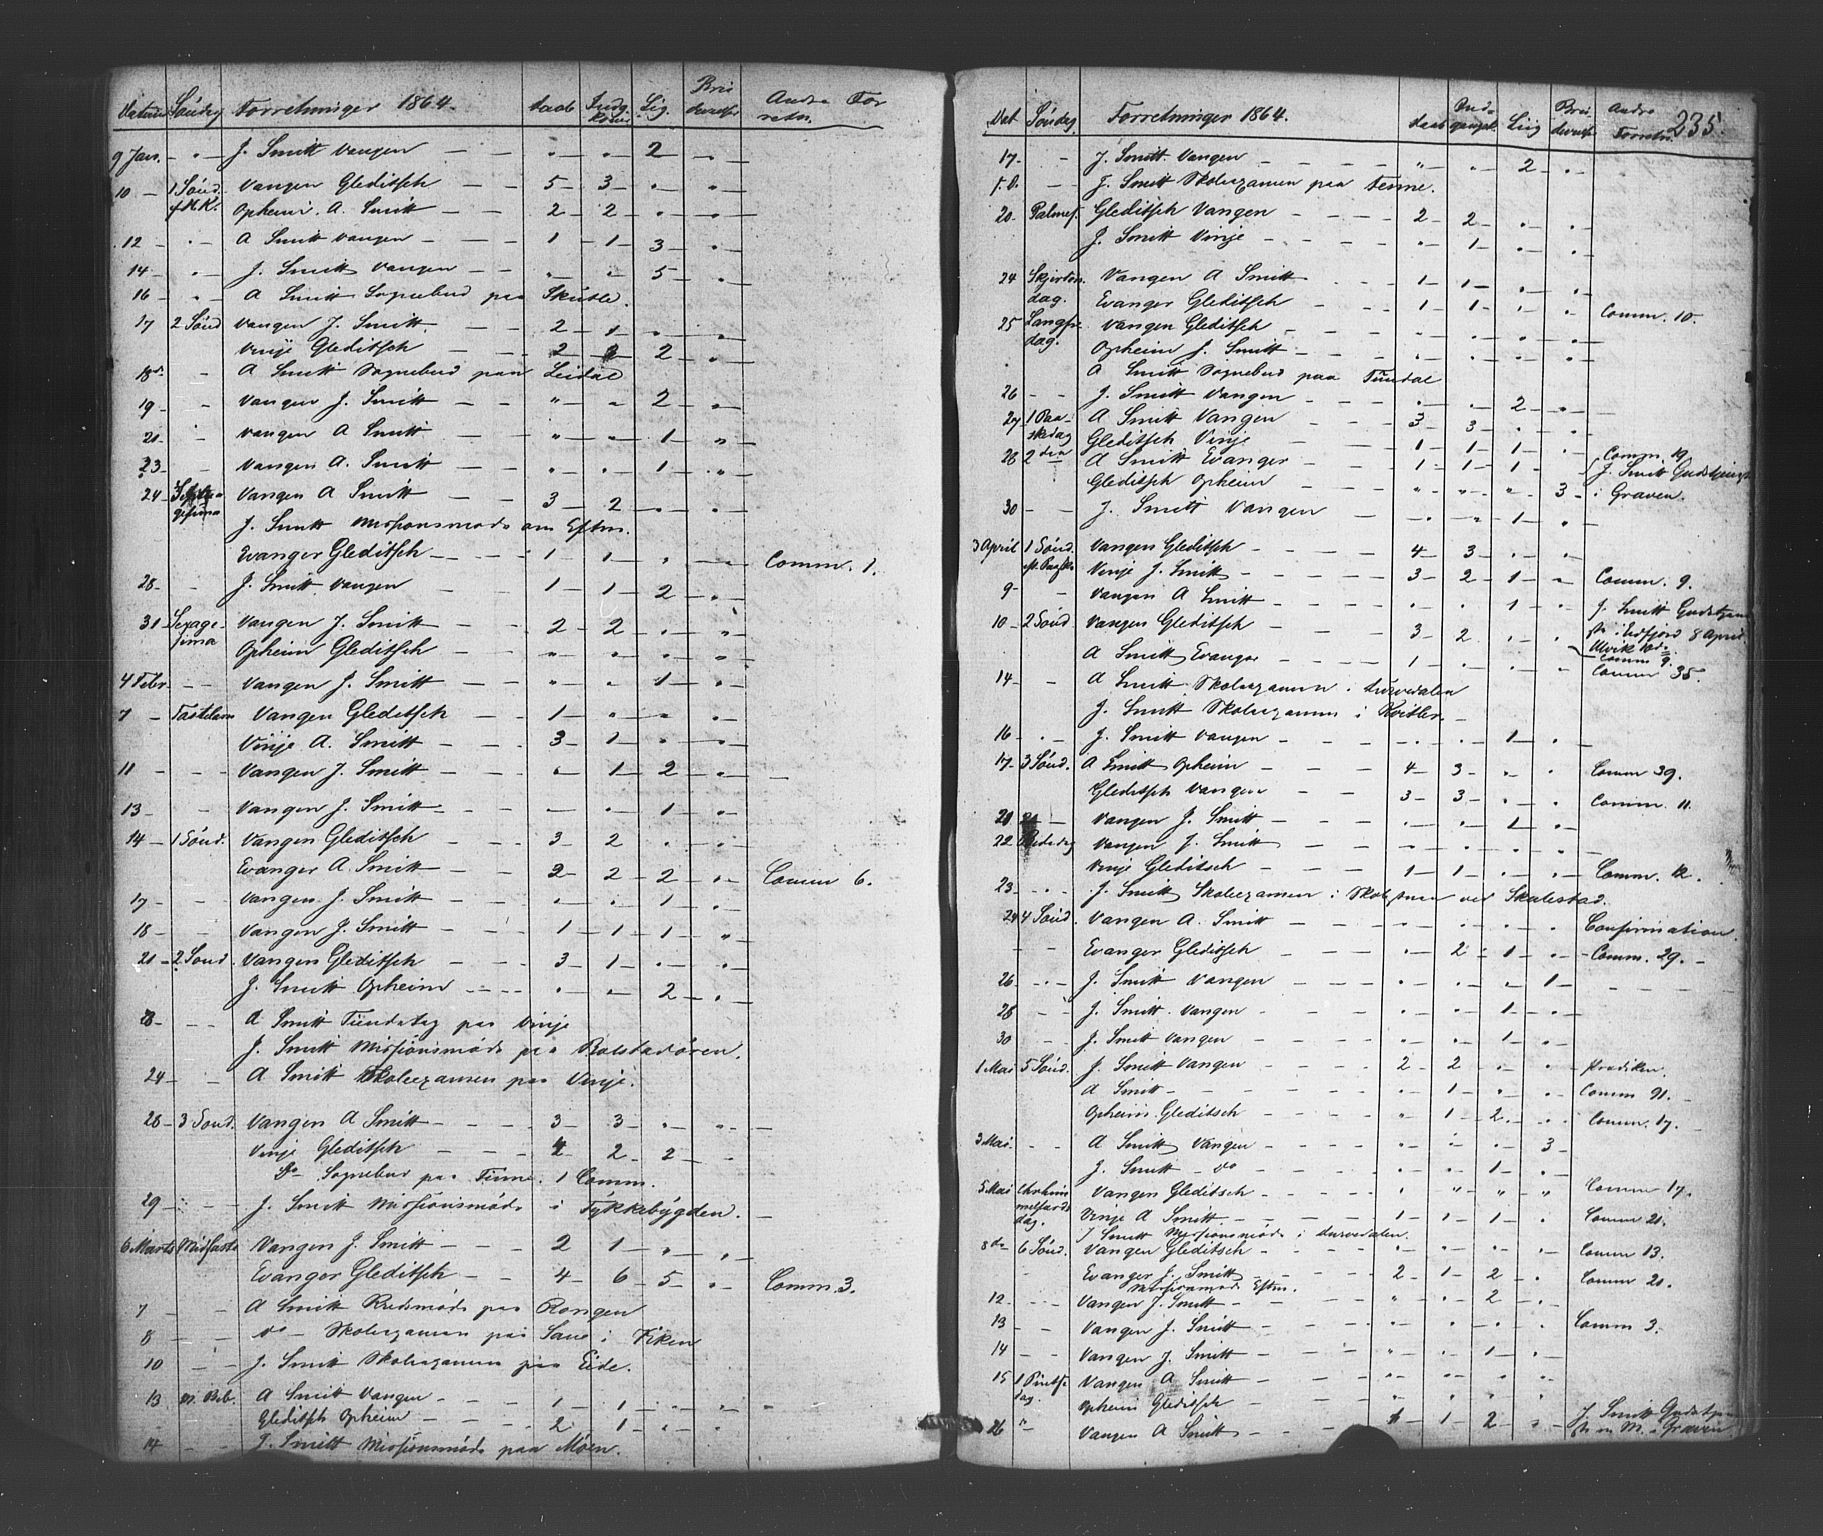 Datum Søndag Forretninger 1864. daab Indg. kone Lig. Bru devielse Andre For retn.
9 Jan. - " - J. Smitt Vangen - - " - " - 2 - " -
10 - 1 Sønd. Vangen Gleditsch - - 5 - 3 - " - " -
f. H. K. Opheim. A. Smitt - - 2 - 2 - " - " -
12 - " - A Smitt Vangen - - - 1 - 1 - 3 - " -
14 - " - J. Smitt Vangen - - " - " - 5 - " -
16 - " - A Smitt Sognebud paa Skutle.
17 - 2 Sønd Vangen J. Smitt. - - 2 - 1 - " - " -
Vinje Gleditsch - - 2 - 2 - 2 - " -
18 d. - A Smitt Sognebud paa Leidal
19 - Vangen J. Smitt - - " - " - 2 - " -
21 - " - Vangen A Smitt - - " - " - 1 - " -
23 - - Vangen A. Smitt - - " - " - 1 - " -
24 - Septua gesima Vangen A Smitt - - 3 - 2 - " - " -
J. Smitt Missionsmøde om Eftm.
Evanger Gleditsch - - - 1 - 1 - " - " - Comm. 1.
28 - - J. Smitt. Vangen - 1 - 1 - 2 - " -
31 - Sexage- sima Vangen J. Smitt - - 2 - 2 - " - " -
Opheim Gleditsch - - " - " - " - " -
4 Febr. - - Vangen J. Smitt - - " - " - 1 - " -
7 - Fastelavn Vangen Gleditsch - - 1 - " - " - " -
Vinje A. Smitt - - 3 - 1 - " - " -
11 - - - Vangen J. Smitt - - " - 1 - 2 - " - -
13 - - Vangen J. Smitt - - - - " - 1 - " -
14 - 1 Sønd. Vangen Gleditsch - - 3 - 2 - " - " -
Evanger A. Smitt - - 2 - 2 - 2 - " - Comm 6.
17 - - Vangen J. Smitt - - " - " - 1 - " -
18 - - Vangen J. Smitt - - 1 - 1 - 1 - " -
21 - 2 Sønd. Vangen Gleditsch - - 3 - 1 - " - " -
J. Smitt Opheim - - - - " - " - 2 - " -
- - A Smitt paa Vinje
J. Smitt Missionsmøde paa Bolstadøren.
24 - - - A Smitt Skoleexamen paa Vinje.
28 - 3 Sønd. Vangen A Smitt - - - - 3 - 3 - " - " - -
Vinje Gleditsch - - - - 2 - 2 - " -
Do Sognebud paa Finne. 1 Comm.
29 - - - J. Smitt Missionsmøde i Tykkebygden. -
6 Marts Midfaste Vangen J. Smitt - - - 2 - 1 - " - " -
Evanger Gleditsch - - 4 - 6 - 5 - " - Comm. 3.
7 - - A Smitt paa Rongen
8 - - do - Skoleexamen paa Saue i
10 - - J. Smitt Skoleexamen paa Eide.
13 M. Beb. A Smitt Vangen - - - 1 - 1 - " - " - "
Gleditsch Opheim - - - 2 - 1 - " - " -
14 - - J. Smitt Missionsmøde paa Møen.
235.
Dat Søndag Forretninger 1864. daab Ind- gangsk. Liig Bru- devielse Andre Forretn.
17. - - J. Smitt. Vangen - - - - " - " - 2 - " -
- - J. Smitt Skoleexamen paa
20 - Palmes. Gleditsch Vangen - - - - 2 - 2 - " - " -
J. Smitt Vinje - - - - " - 1 - " - " -
24 Skjertors dag. Vangen A Smitt - - - 1 - 1 - " - " -
Evanger Gleditsch - - - 1 - 1 - " - " - Comm. 10.
25 Langfre dag. Vangen Gleditsch - - - " - " - " - " -
Opheim J. Smitt - - - - " - " - " - " -
A Smitt Sognebud paa
26 - - J. Smitt Vangen - - - - " - " - 2 - " -
27 1 Paa- skedag A Smitt Vangen - - - - 3 - 3 - " - " -
Gleditsch Vinje - - - 1 - 1 - 1 - " - Comm. 19
28 2 den A Smitt Evanger - - - - 1 - 1 - 1 - J. Smitt Gudstjeneste
Gleditsch Opheim - - - - " - " - " - 3 - i Graven.
30 - - J. Smitt Vangen - - - " - " - 1 - " -
3 April 1 Sønd. Vangen Gleditsch - - - - 4 - 3 - " - " -
eft. Paaske Vinje J. Smitt - - - - - 3 - 2 - 1 - " - Comm. 9.
9 - - Vangen A Smitt - - - - " - " - 1 - " - J. Smitt Gudstjene
10 - 2 Sønd Vangen Gleditsch - - - - 3 - 2 - " - " - ste i Eidfjord 8 April
Ulvik 10 d.
A Smitt Evanger - - - - 1 - " - " - " - Comm 9.
Comm 35.
14 - - A Smitt Skoleexamen i
J. Smitt Skoleexamen i -
16 - " - J. Smitt Vangen - - - - " - " - 1 - " -
17 - 3 Sønd. A Smitt Opheim - - - - 4 - 3 - " - " - Comm 39.
Gleditsch Vangen - - - 3 - 3 - " - " - Comm. 11.
20 - Vangen J. Smitt - - - - " - " - 1 - " -
22 - Bededag Vangen J. Smitt - - - " - " - " - " -
Vinje Gleditsch - - - 1 - 1 - " - " - Comm. 12.
23 - " - J. Smitt Skoleexamen i ved Skulestad.
24 4 Sønd. Vangen A. Smitt - - - " - " - " - " - Confirmation.
Evanger Gleditsch - - - - " - 2 - 1 - " - Comm. 29. -
26 - " - J. Smitt Vangen - - - " - " - " - 1 -
28 - - J. Smitt. Vangen - - - - " - " - 1 - " -
30 - J. Smitt Vangen - - - - " - " - 1 - " -
1 Mai 5 Sønd. J. Smitt Vangen - - - 2 - 2 - " - " - Prædiken.
A Smitt - - - - " - 1 - " - " - Comm 91. -
Opheim. Gleditsch - - - " - 1 - 2 - " - Comm. 17.
3 Mai - - A Smitt Vangen - - - " - " - " - 3 -
J. Smitt - do - - - " - " - 1 - " -
5 Mai Christi himmelfarts dag. Vangen Gleditsch - - - - " - " - " - " Comm 17.
Vinje A Smitt - - - - 1 - 1 - 1 - " Comm 21.
J Smitt Missionsmøde i
8 de 6 Sønd. Vangen Gleditsch - - - " - " - " - " - Comm 13.
Evanger J. Smitt - - - 2 - 1 - 2 - " Comm 20.
Missionsmøde Eftm.
12 - - - Vangen J. Smitt - - - " - " - 2 - " -
13 - - Vangen J. Smitt - - - " - " - " - " - Comm 3.
14 - - Vangen J. Smitt - - - " - " - 1 - " -
15 1 Pintse dag. Vangen A Smitt - - - " - " - " - " -
Opheim Gleditsch - - - " - " - " - " -
" Vangen A Smitt - - - 1 - 2 - " - J. Smitt Gudstjene
ste i Graven